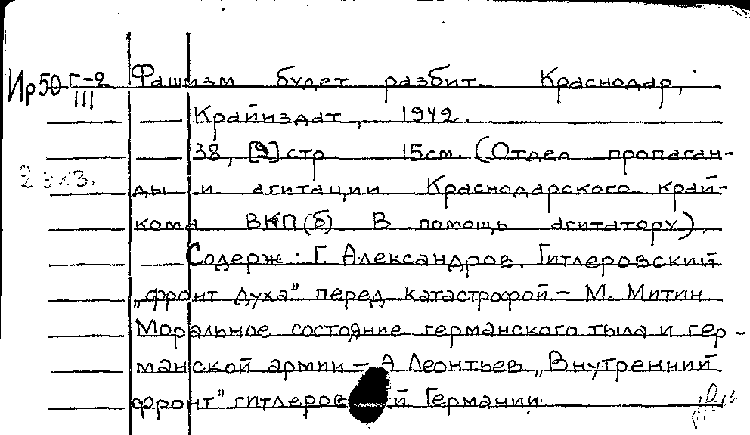 Ир50 Г-2 Фашизм будет разбит Краснодар,
III
Крайиздат, 1942.
38, [2] стр 15см. (Отдел пропаган-
2 экз.
ды и агитации Краснодарского край-
кома ВКП(б) В помощь агитатору).
Содерж: Г. Александров. Гитлеровский
„фронт духа" перед катастрофой – М. Митин
Моральное состояние германского тыла и гер-
манской армии – А Леонтьев „Внутренний
фронт" гитлеров й Германии